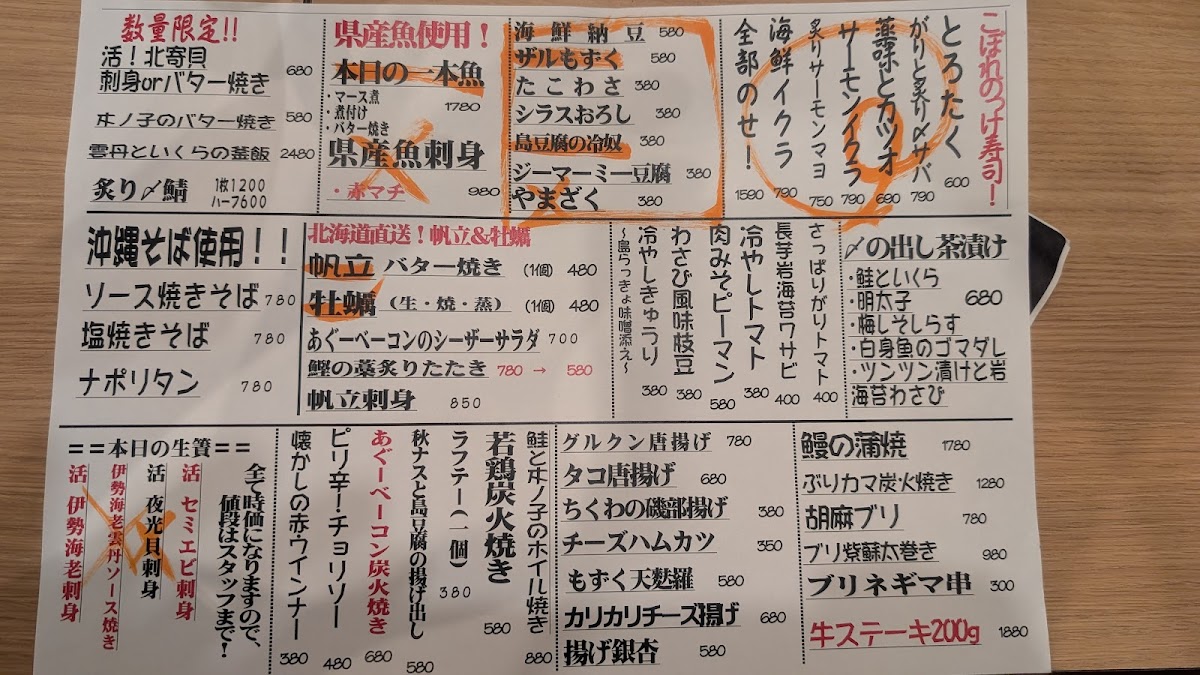 数量限定!!
活！北寄貝
刺身orバター焼き 680
キノ子のバター焼き 580
雲丹といくらの釜飯 2480
炙り〆鯖 1枚1200
ハーフ600
県産魚使用！
本日の一本魚
・マース煮 1780
・煮付け
・バター焼き
県産魚刺身
・赤マチ 980
海鮮納豆 580
ザルもずく 580
たこわさ 380
シラスおろし 380
島豆腐の冷奴 380
ジーマーミー豆腐 380
やまざく 380
こぼれのっけ寿司！
とろたく 600
がりと炙り〆サバ 790
薬味とカツオ 690
サーモンイクラ 790
炙りサーモンマヨ 750
海鮮イクラ 790
全部のせ！ 1590
沖縄そば使用！！
ソース焼きそば 780
塩焼きそば 780
ナポリタン 780
北海道直送！帆立&牡蠣
帆立 バター焼き (1個) 480
牡蠣 （生・焼・蒸） (1個) 480
あぐーベーコンのシーザーサラダ 700
鰹の藁炙りたたき 780 → 580
帆立刺身 850
さっぱりガリトマト 400
長芋岩海苔ワサビ 400
冷やしトマト 380
肉みそピーマン 580
わさび風味枝豆 380
冷やしきゅうり 380
～島らっきょ味噌添え～
〆の出し茶漬け
・鮭といくら
・明太子 680
・梅しそしらす
・白身魚のゴマダレ
・ツンツン漬けと岩
海苔わさび
==本日の生簀==
全て時価になりますので、
値段はスタッフまで！
活 セミエビ刺身
活 夜光貝刺身
伊勢海老雲丹ソース焼き
活 伊勢海老刺身
鮭とキノ子のホイル焼き 880
若鶏炭火焼き 580
ラフテー(一個) 380
秋ナスと島豆腐の揚げ出し 580
あぐーベーコン炭火焼き 680
ピリ辛！チョリソー 480
懐かしの赤ウインナー 380
グルクン唐揚げ 780
タコ唐揚げ 680
ちくわの磯部揚げ 380
チーズハムカツ 350
もずく天麩羅 580
カリカリチーズ揚げ 680
揚げ銀杏 580
鰻の蒲焼 1780
ぶりカマ炭火焼き 1280
胡麻ブリ 780
ブリ紫蘇太巻き 980
ブリネギマ串 300
牛ステーキ200g 1880